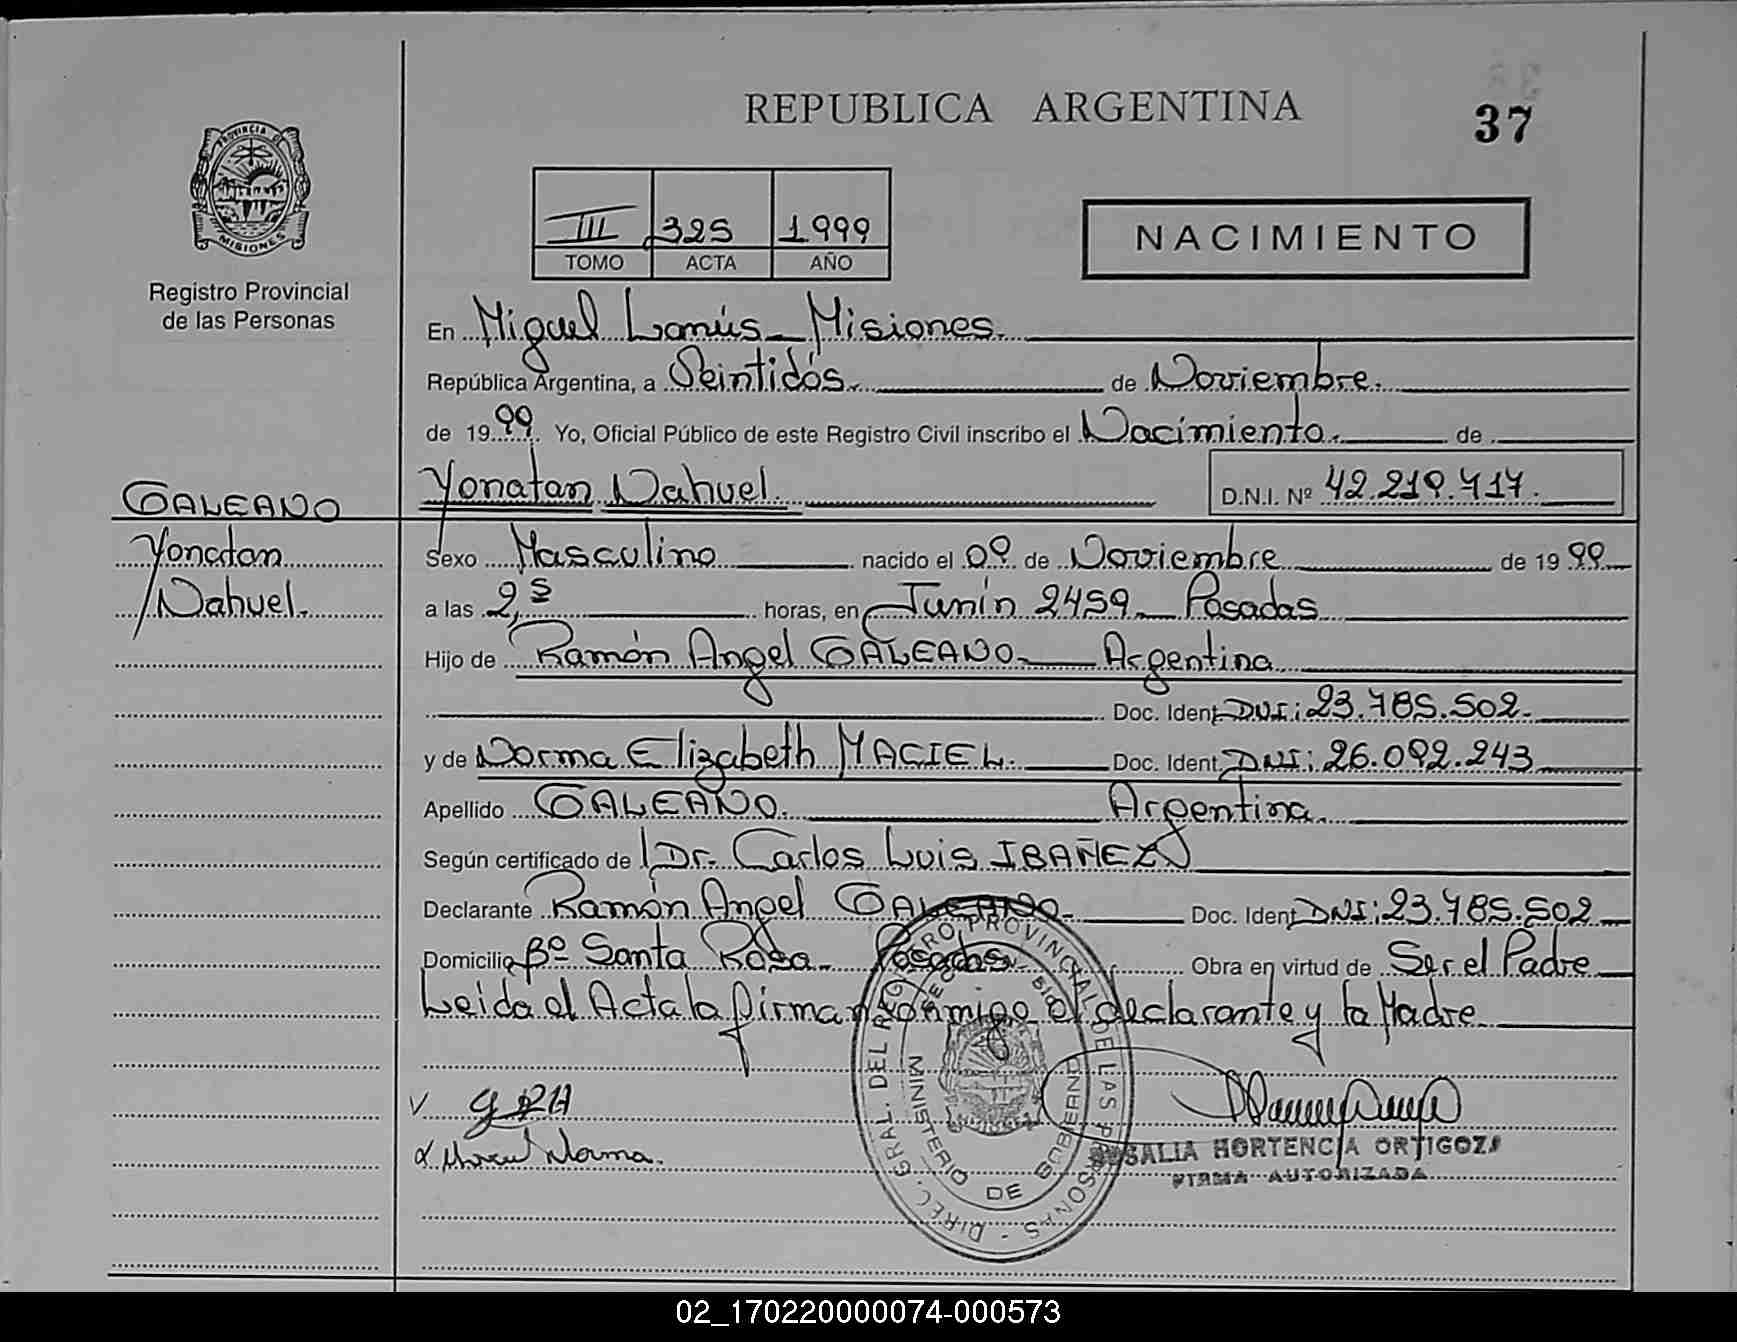 REPUBLICA ARGENTINA
37
PROVINCIA DE
MISIONES
Registro Provincial
de las Personas
III 325 1999
TOMO ACTA AÑO
NACIMIENTO
En Miguel Lanús - Misiones.
República Argentina, a Veintidós. de Noviembre.
de 1999. Yo, Oficial Público de este Registro Civil inscribo el Nacimiento. de
Yonatan Nahuel. D.N.I. Nº 42.219.717.
GALEANO
Yonatan
Nahuel.
Sexo Masculino nacido el 09 de Noviembre de 1999
a las 2,5 horas, en Junín 2459 - Posadas
Hijo de Ramón Angel GALEANO - Argentina
Doc. Ident DNI: 23.785.502 -
y de Norma Elizabeth MACIEL. Doc. Ident DNI: 26.092.243
Apellido GALEANO. Argentina.
Según certificado de Dr. Carlos Luis IBAÑEZ
Declarante Ramón Angel GALEANO - Doc. Ident DNI: 23.785.502
Domicilio Bº Santa Rosa - Posadas - Obra en virtud de Ser el Padre
Leida el Acta la firman conmigo el declarante y la Madre
Norma.
DIREC. GRAL. DEL REGISTRO PROVINCIAL DE LAS PERSONAS -
MINISTERIO DE GOBIERNO
ROSALIA HORTENCIA ORTIGOZA
FIRMA AUTORIZADA
02_170220000074-000573